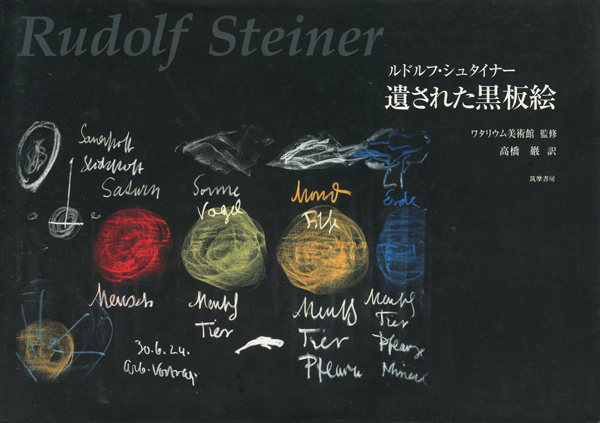 Rudolf Steiner
ルドルフ・シュタイナー
遺された黒板絵
ワタリウム美術館 監修
高橋 巖 訳
筑摩書房
Sauerstoff
Stickstoff
Saturn
Sonne
Vogel
Mond
Erde
Mensch
Mensch
Tier
Mensch
Tier
Pflanze
Mensch
Tier
Pflanze
Mineral
30.6.24.
Arb. Vortrag.